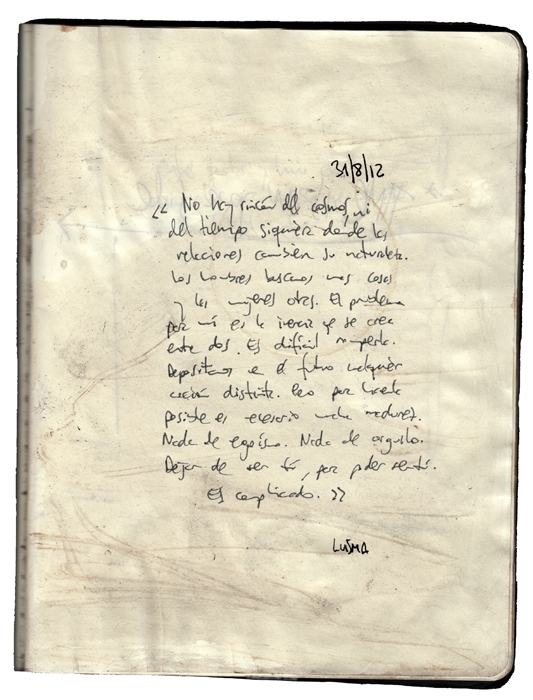 31/8/12
“ No hay rincón del cosmos, ni
del tiempo siquiera donde las
relaciones cambien su naturaleza.
Los hombres buscamos unas cosas
y las mujeres otras. El problema
para mí es la inercia que se crea
entre dos. Es difícil romperla.
Depositamos en el futuro cualquier
acción distinta. Pero para hacerla
posible es necesario mucha madurez.
Nada de egoísmo. Nada de orgullo.
Dejar de ser tú, para poder ser tú.
Es complicado. ”
LUISMA